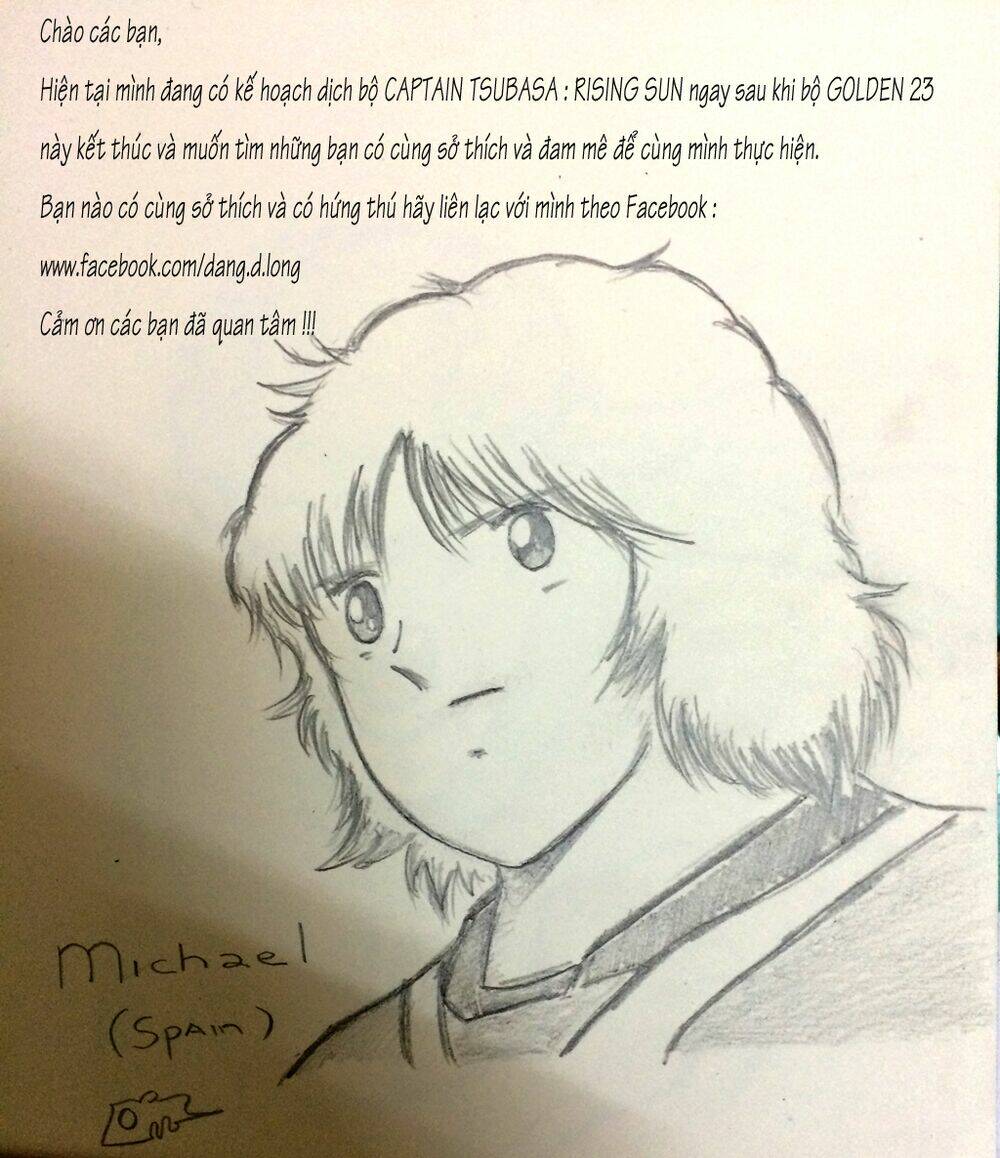 Chào các bạn,
Hiện tại mình đang có kế hoạch dịch bộ CAPTAIN TSUBASA : RISING SUN ngay sau khi bộ GOLDEN 23
này kết thúc và muốn tìm những bạn có cùng sở thích và đam mê để cùng mình thực hiện.
Bạn nào có cùng sở thích và có hứng thú hãy liên lạc với mình theo Facebook :
www.facebook.com/dang.d.long
Cảm ơn các bạn đã quan tâm !!!
Michael
(Spain)